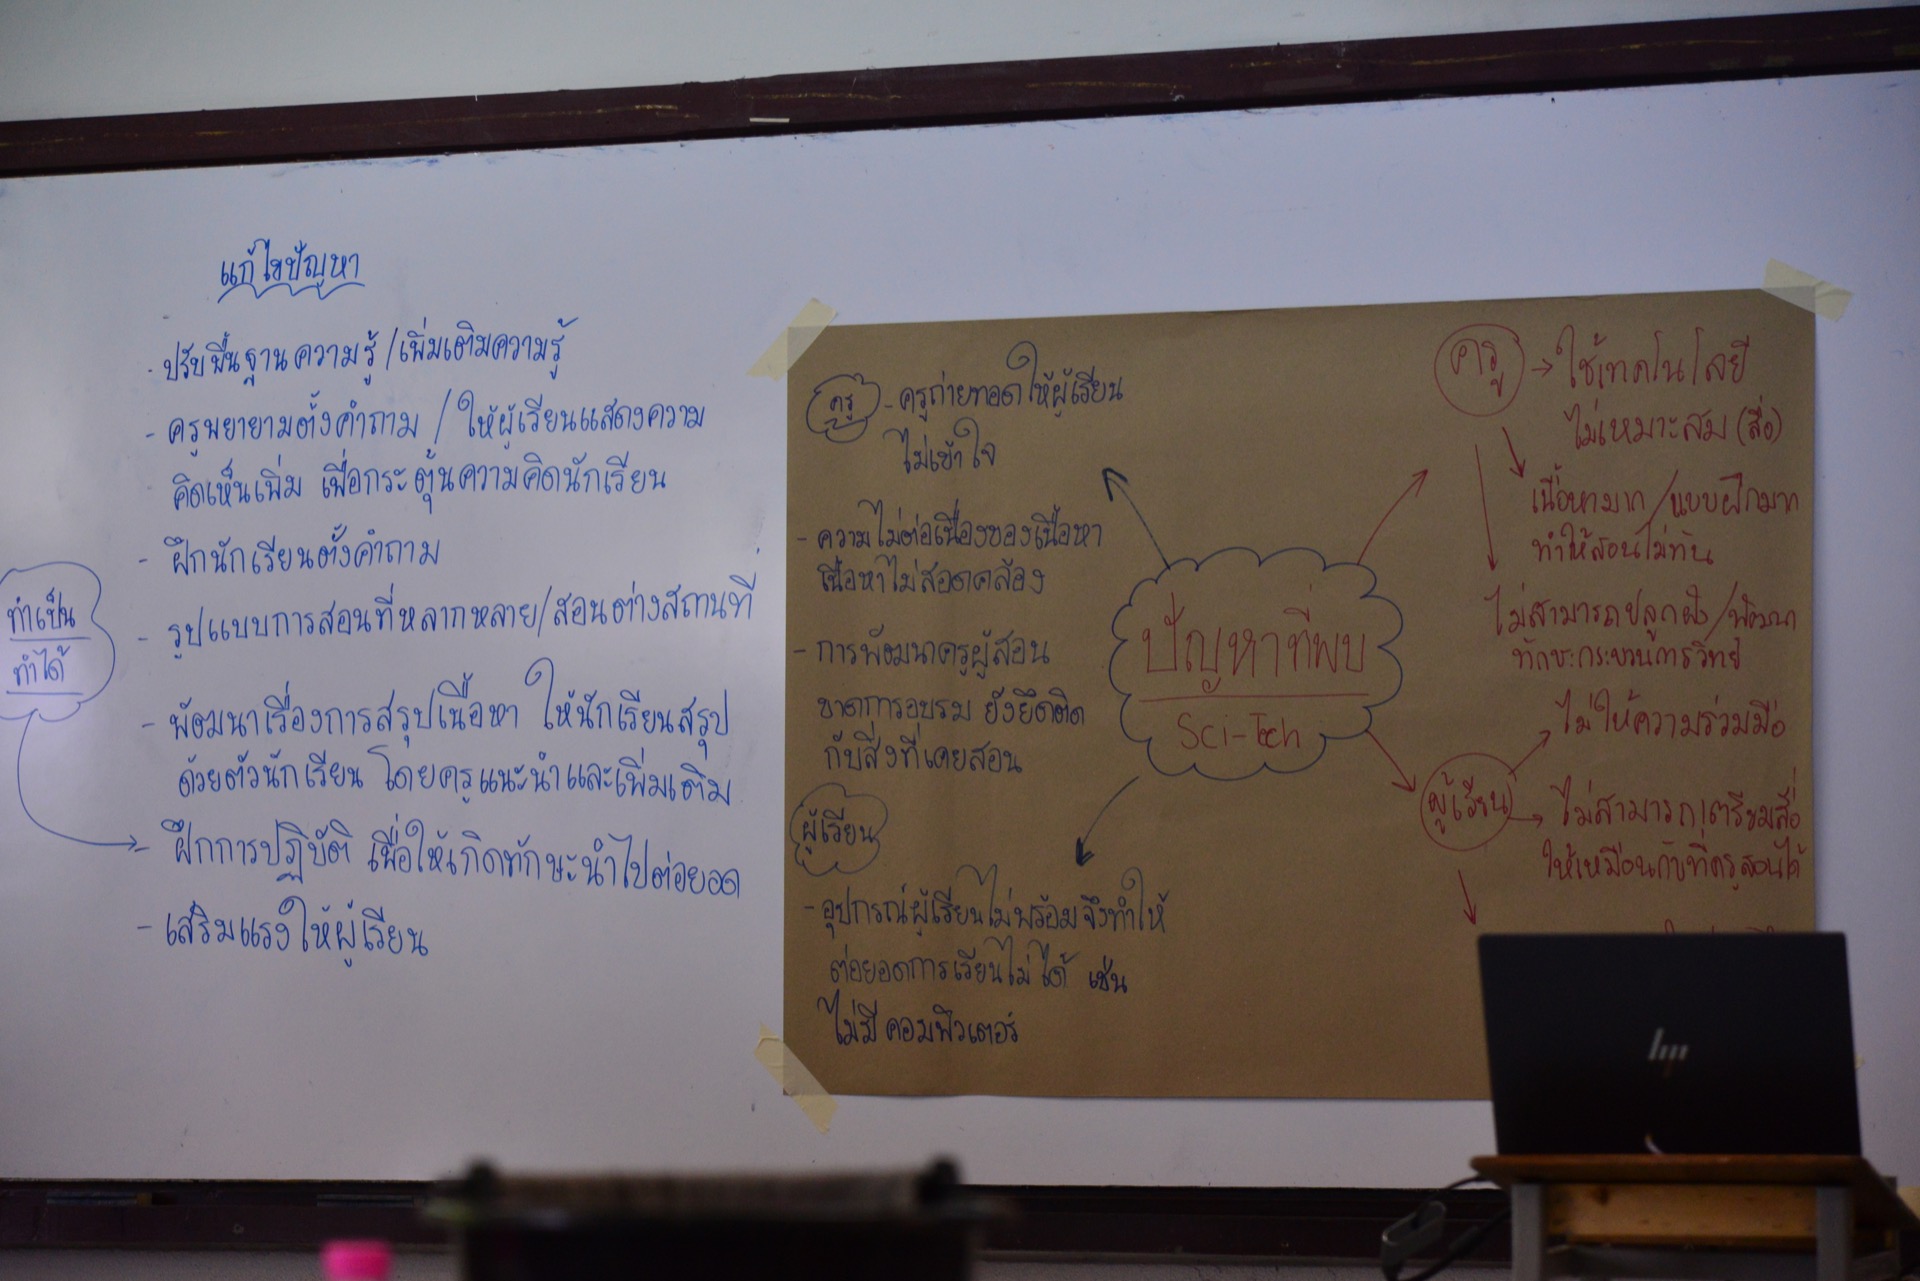 แก้ไขปัญหา
- ปรับพื้นฐานความรู้ /เพิ่มเติมความรู้
- ครูพยายามตั้งคำถาม / ให้ผู้เรียนแสดงความ
คิดเห็นเพิ่ม เพื่อกระตุ้นความคิดนักเรียน
- ฝึกนักเรียนตั้งคำถาม
- รูปแบบการสอนที่หลากหลาย/สอนต่างสถานที่
- พัฒนาเรื่องการสรุปเนื้อหา ให้นักเรียนสรุป
ด้วยตัวนักเรียน โดยครูแนะนำและเพิ่มเติม
- ฝึกการปฏิบัติ เพื่อให้เกิดทักษะนำไปต่อยอด
- เสริมแรงให้ผู้เรียน
ทำเป็น
ทำได้
ครู - ครูถ่ายทอดให้ผู้เรียน
ไม่เข้าใจ
- ความไม่ต่อเนื่องของเนื้อหา
เนื้อหาไม่สอดคล้อง
- การพัฒนาครูผู้สอน
ขาดการอบรม ยังยึดติด
กับสิ่งที่เคยสอน
ผู้เรียน
- อุปกรณ์ผู้เรียนไม่พร้อมจึงทำให้
ต่อยอดการเรียนไม่ได้ เช่น
ไม่มีคอมพิวเตอร์
ปัญหาที่พบ
Sci-Tech
ครู → ใช้เทคโนโลยี
ไม่เหมาะสม (สื่อ)
เนื้อหามาก /แบบฝึกมาก
ทำให้สอนไม่ทัน
ไม่สามารถปลูกฝัง /พัฒนา
ทักษะกระบวนการวิทย์
ผู้เรียน
ไม่ให้ความร่วมมือ
ไม่สามารถเตรียมสื่อ
ให้เหมือนกับที่ครูสอนได้
hp